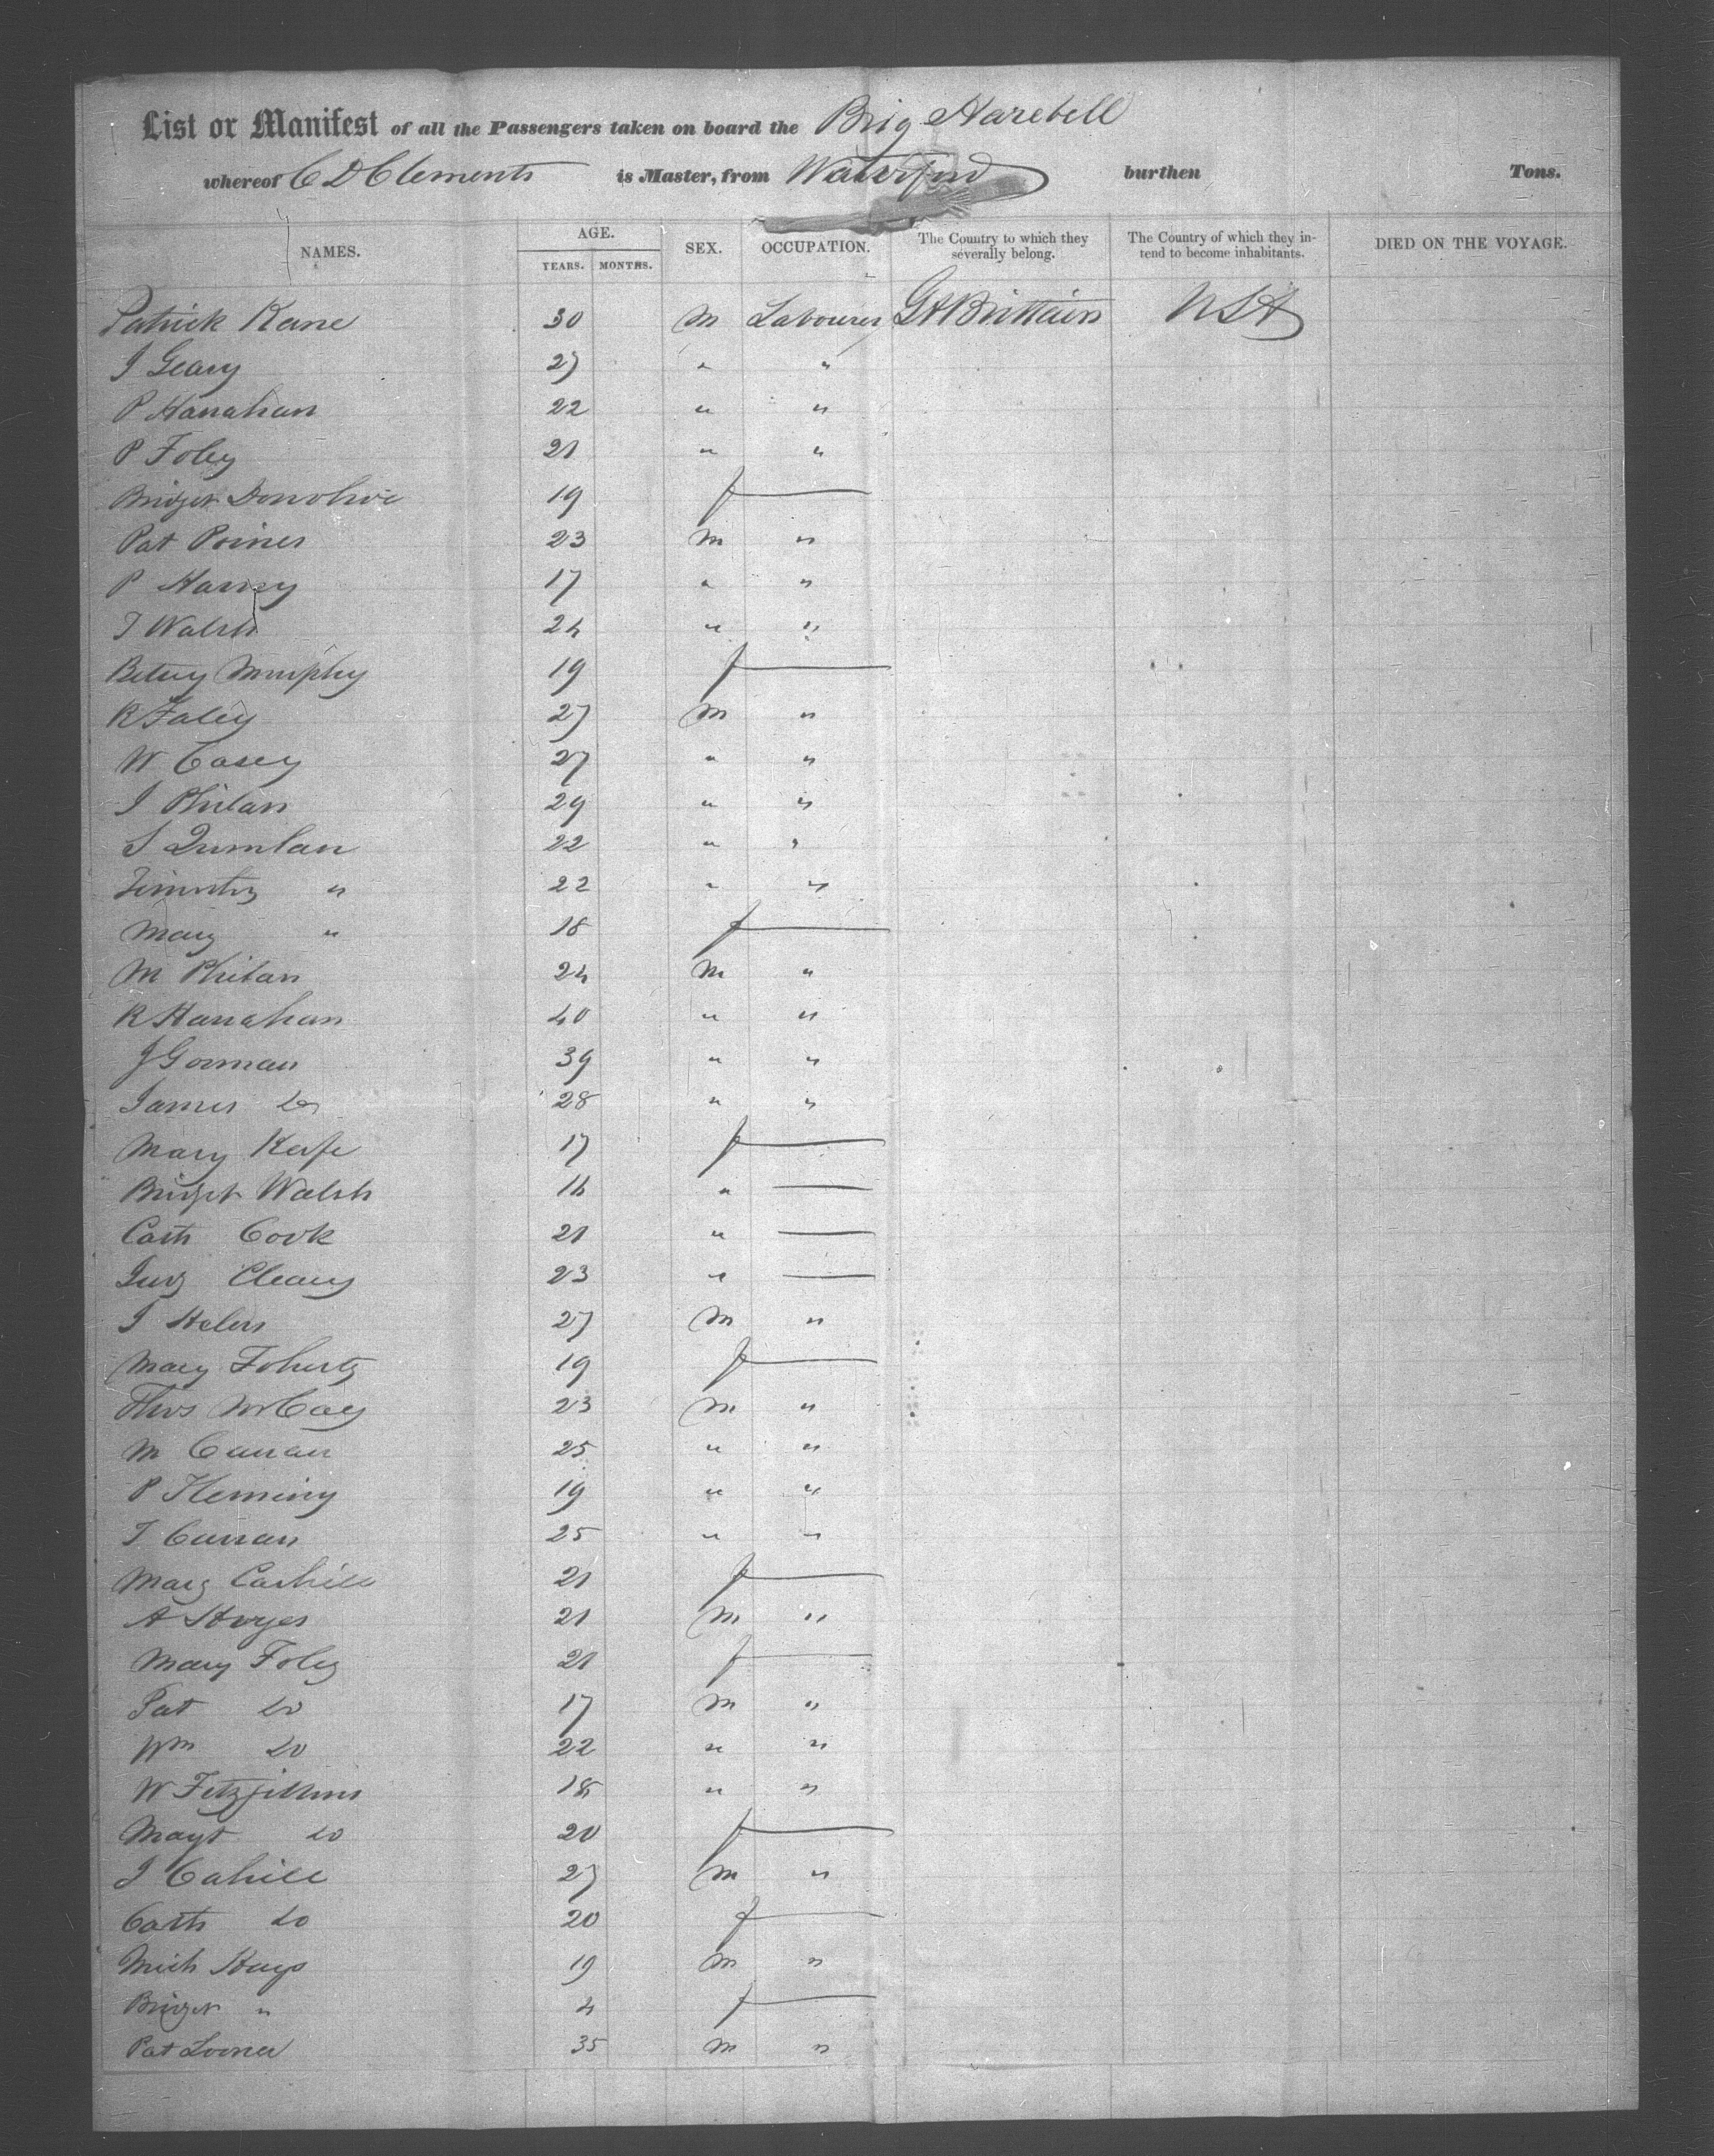 List or Manifest of all the Passengers taken on board the Brig Harebell
whereof C D Clements is Master, from Waterford burthen Tons.
NAMES. AGE. YEARS. MONTHS. SEX. OCCUPATION. The Country to which they severally belong. The Country of which they intend to become inhabitants. DIED ON THE VOYAGE.
Patrick Kane 30 M Labourer Gt Brittain USA
J Geary 27 " "
P Hanahan 22 " "
P Foley 21 " "
Bridget Donohue 19 f —
Pat Poines 23 M "
P Harney 17 " "
T Walsh 24 " "
Betsey Murphy 19 f —
R Faley 27 M "
W Casey 27 " "
J Phelan 29 " "
S Quinlan 22 " "
Timothy " 22 " "
Mary " 18 f —
M Phelan 24 M "
R Hanahan 40 " "
J Gorman 39 " "
James Do 28 " "
Mary Keefe 17 f —
Bridget Walsh 16 " —
Cath Cook 21 " —
Cleary 23 " —
J 27 M "
Mary Foherty 19 f —
Thos McCoy 23 M "
M Curran 25 " "
P Fleming 19 " "
T Curran 25 " "
Mary Cashill 21 f —
A Hoyes 21 M "
Mary Foley 21 f —
Pat Do 17 M "
Wm Do 22 " "
W Fitzgibbins 18 " "
Magt Do 20 f —
J Cahill 27 M "
Cath Do 20 f —
Mich Hays 19 M "
Bridget " 4 f —
Pat 35 M "